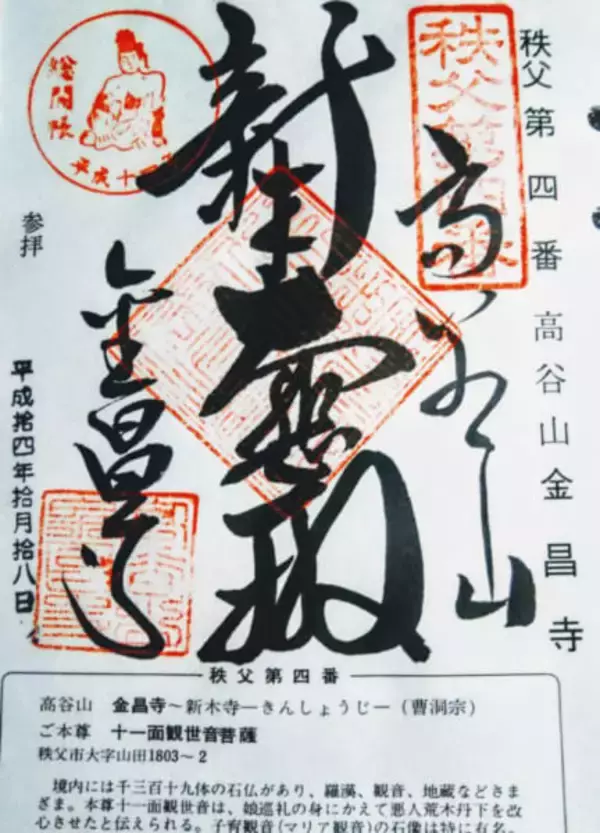 秩父第四番 高谷山金昌寺
秩父第四番
高谷山
新木大悲殿
金昌寺
總開帳
平成十
参拝
平成拾四年拾月拾八日
秩父第四番
高谷山 金昌寺～新木寺―きんしょうじ―（曹洞宗）
ご本尊 十一面観世音菩薩
秩父市大字山田1803～2
境内には千三百十九体の石仏があり、羅漢、観音、地蔵などさま
ざま。本尊十一面観世音は、娘巡礼の身にかえて悪人荒木丹下を改
心させたと伝えられる。子育観音（マリア観音）の石像は特に有名。